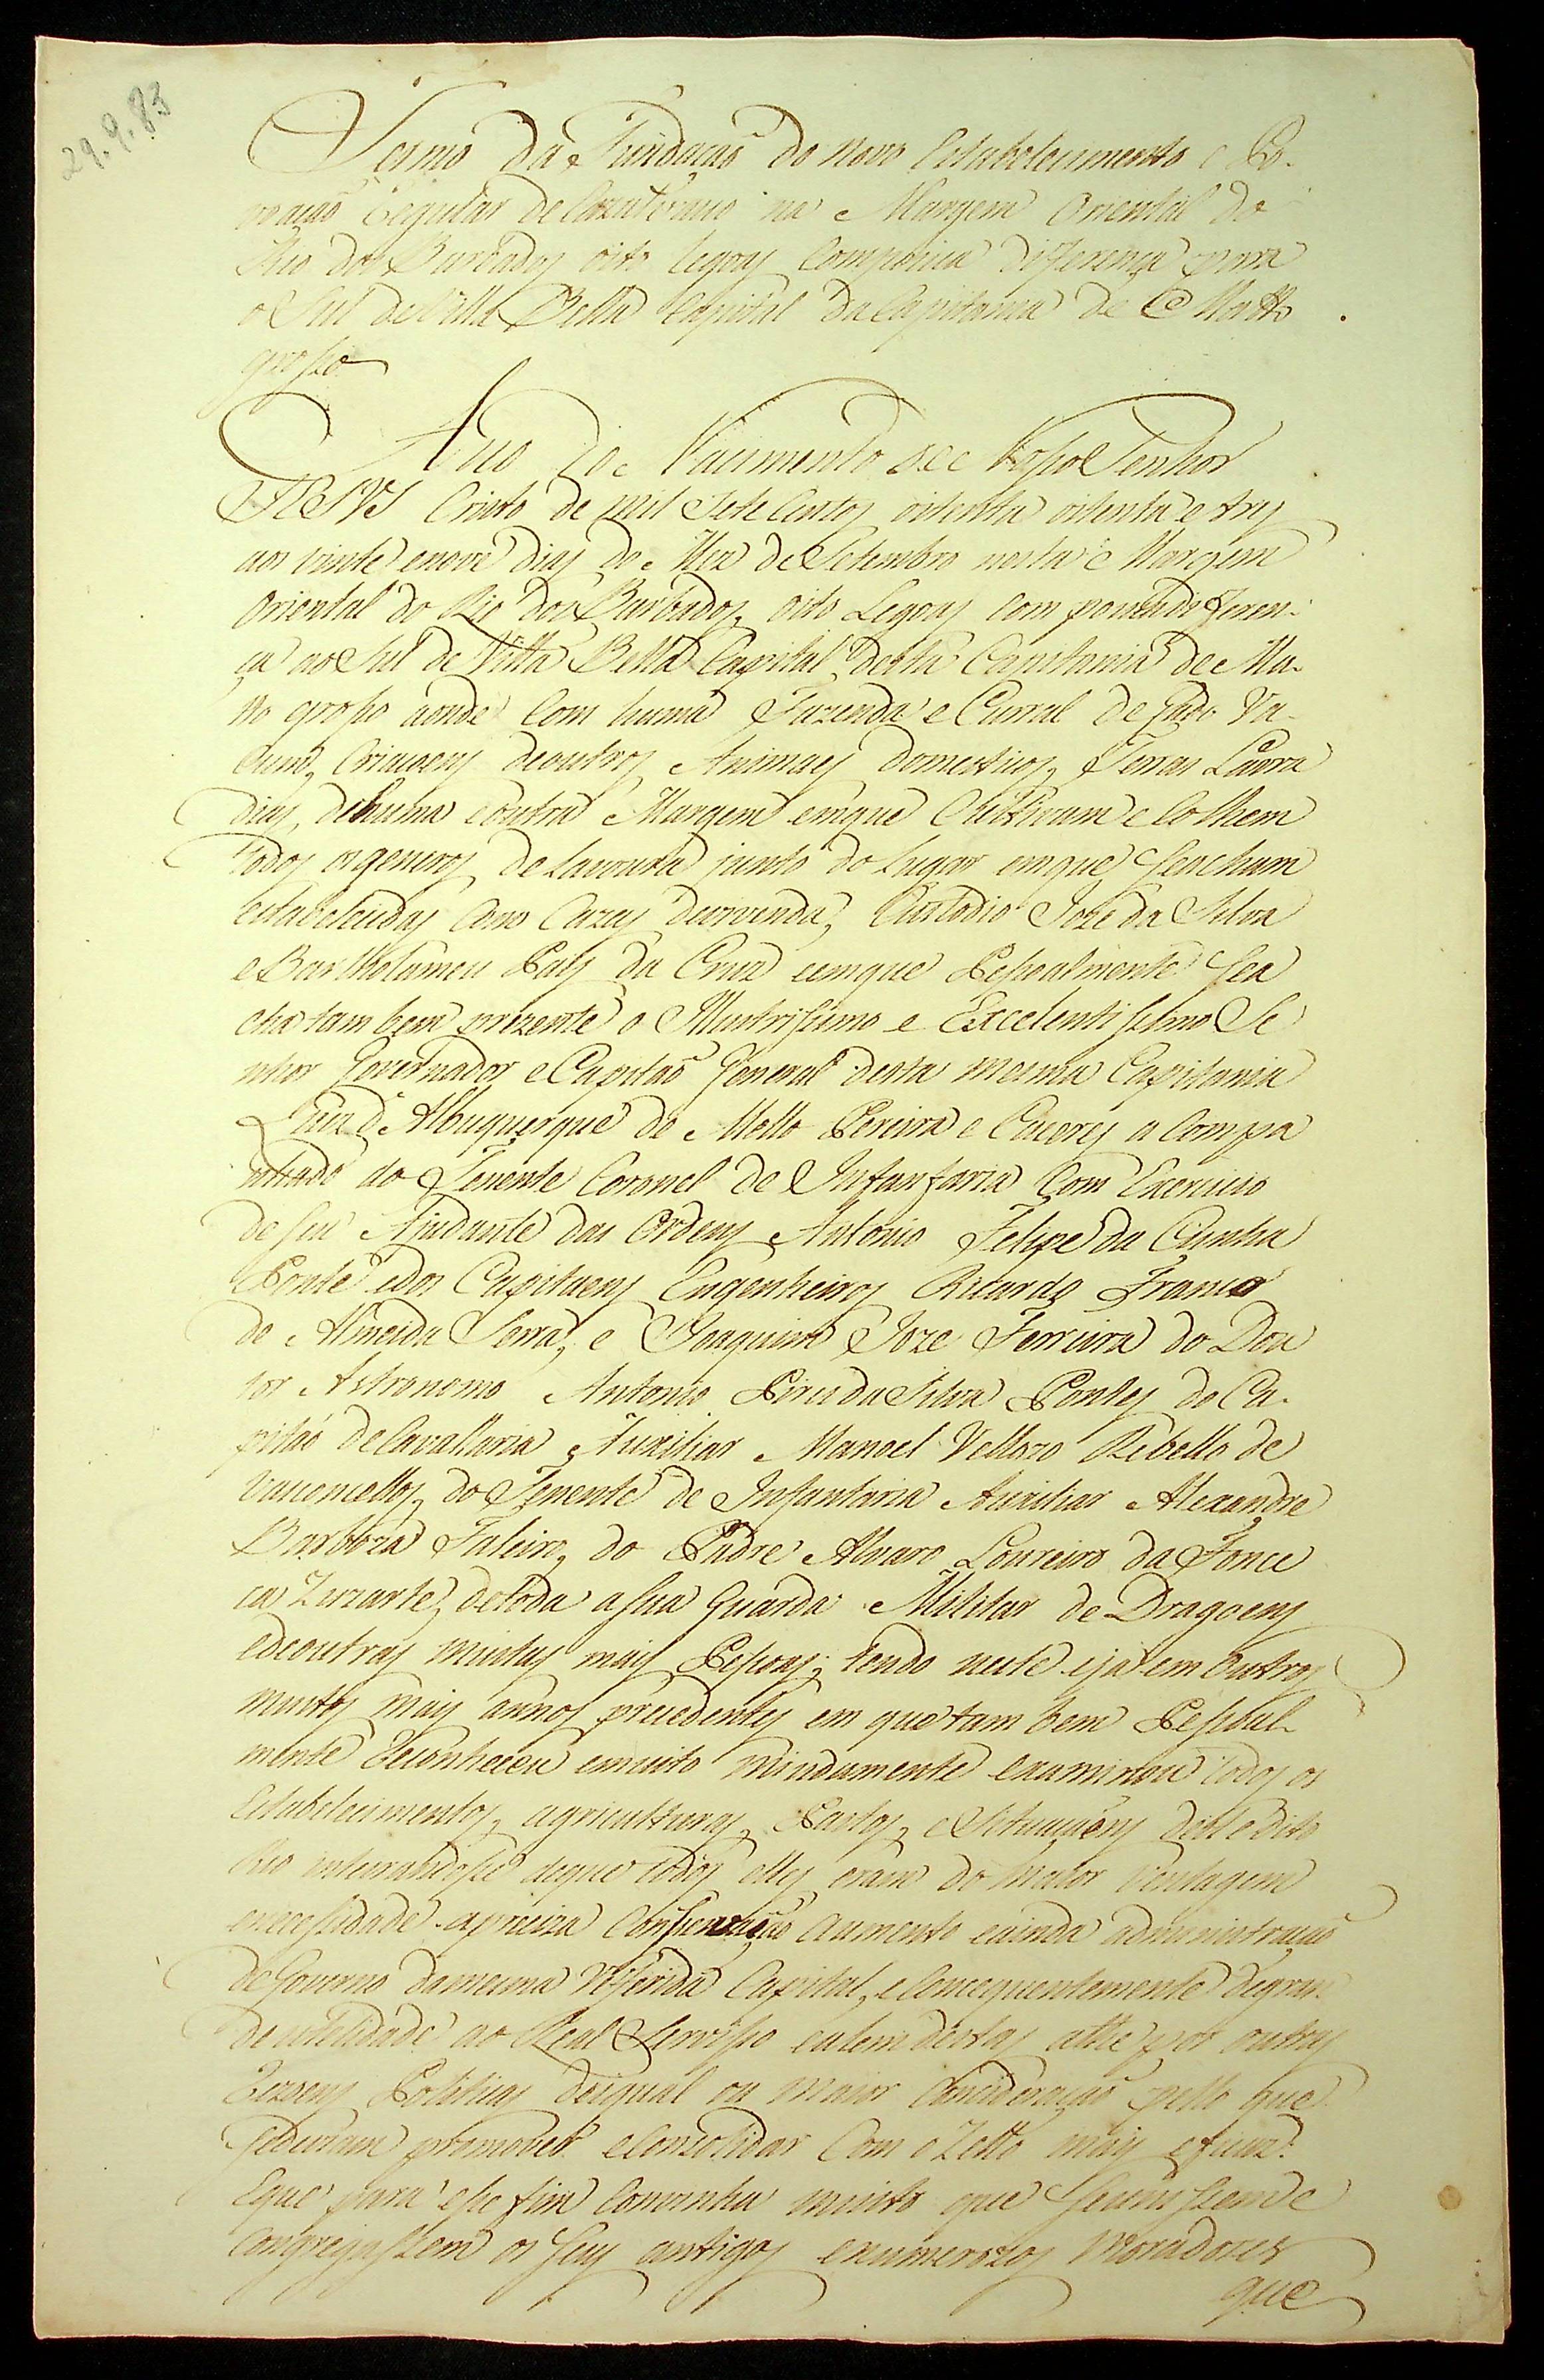 29.9.83
Termo da Fundaçaõ do novo Estabelecimento e Po-
voaçaõ Regular de Cazalvasco na Margem Oriental do
Rio dos Barbados oito legoas Compouca diferença para
o Sul de Villa Bella Capital da Capitania de Matto
grosso
Anno do Nacimento de Nosso Senhor
JESVS Cristo de mil Sete Centos oitenta oitenta e tres
aos vinte enove dias do Mez de Setembro nesta Margem
Oriental do Rio dos Barbados, oito Legoas com pouca diferen-
ça ao Sul de Villa Bella Capital desta Capitania de Ma-
tto grosso aonde Com huma Fazenda e Curral de gado Va-
cum, Criaçoens deoutros Animaes domesticos, Terras Lavra
dias, dehuma eoutra Margem emque Cultivam e Colhem
todos osgeneros de Lavoura junto do Lugar emque Seacham
estabelecidas Com Cazas devivenda, Custodio Joze da Silva
e Bartholameu Pais da Cruz eemque Pessoalmente Sea
cha tam bem prezente o Illustrissimo e Excelentissimo Se
nhor Governador e Capitaõ General desta mesma Capitania
Luiz d'Albuquerque de Mello Pereira e Caceres a Compa
nhado do Tenente Coronel de Infantaria Com Exercicio
de Seu Ajudante das Ordens Antonio Felipe da Cunha
Ponte edos Capitaens Engenheiros Ricardo Franco
de Almeida Serra, e Joaquim Joze Ferreira do Dou
tor Astronomo Antonio Pires da Silva Pontes do Ca-
pitaõ de Cavallaria Auxiliar Manoel Vellozo Rebello de
Vasconcellos, do Tenente de Infantaria Auxiliar Alexandre
Barboza Faleiro, do Padre Alvaro Loureiro da Fonce
ca Zuzarte, detoda a Sua Guarda Militar de Dragoens
edeoutras muitas mais Pessoas; tendo neste ejá em outros
muitos mais annos precedentes em que tam bem Pessoal-
mente Reconheceu emuito miudamente examinou todos os
Estabelecimentos, agriculturas, Pastos, e Situaçoens deste dito
Rio inteirandosse deque todos elles eram do maior ventagem
enecessidade apreciza Conservaçaõ aumento eainda administraçaõ
de Governo damesma Referida Capital, e Concequentemente degran
de utelidade ao Real Servisso ealem destas athe por outras
Rezoens Politicas deigual ou maior Concideraçaõ pello que
sedeviam promover eConsolidar Com o Zello mais eficaz.
Eque para esse fim Convinha muito que Seunissem e
Congregassem os Seus antigos enumerozos Moradores
que